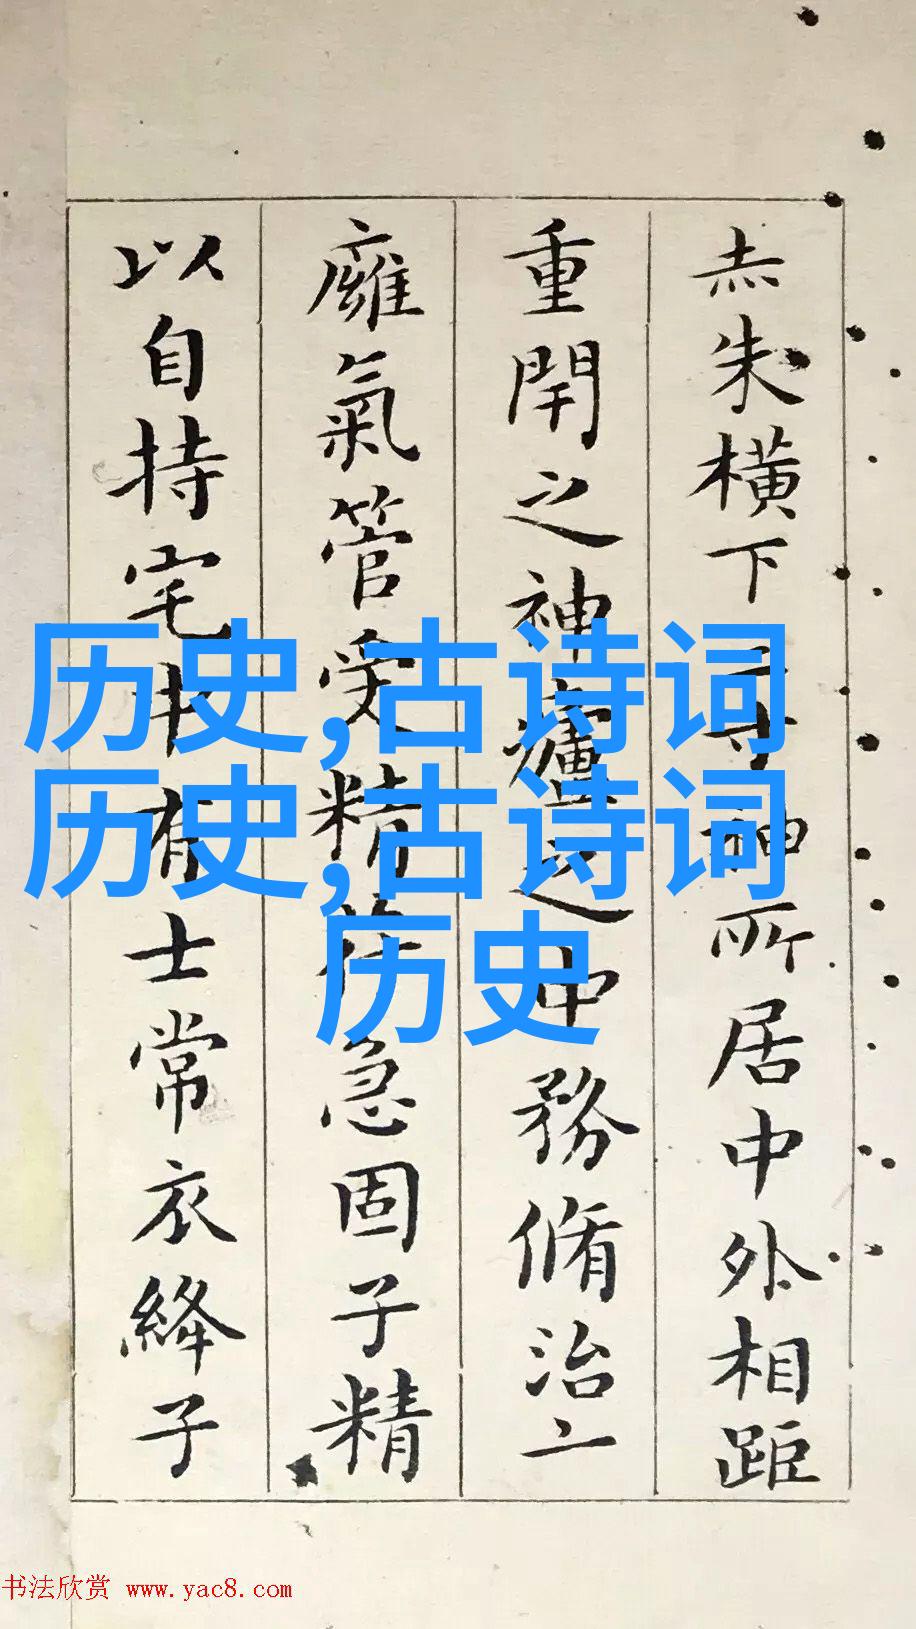 赤朱横下三寸神所居中外相距
重閇之神廬之中務脩治
廱氣管受精符急固子精
以自持宅中有士常衣絳子
历史,古诗词
历史,古诗词
历史
书法欣赏 www.yac8.com